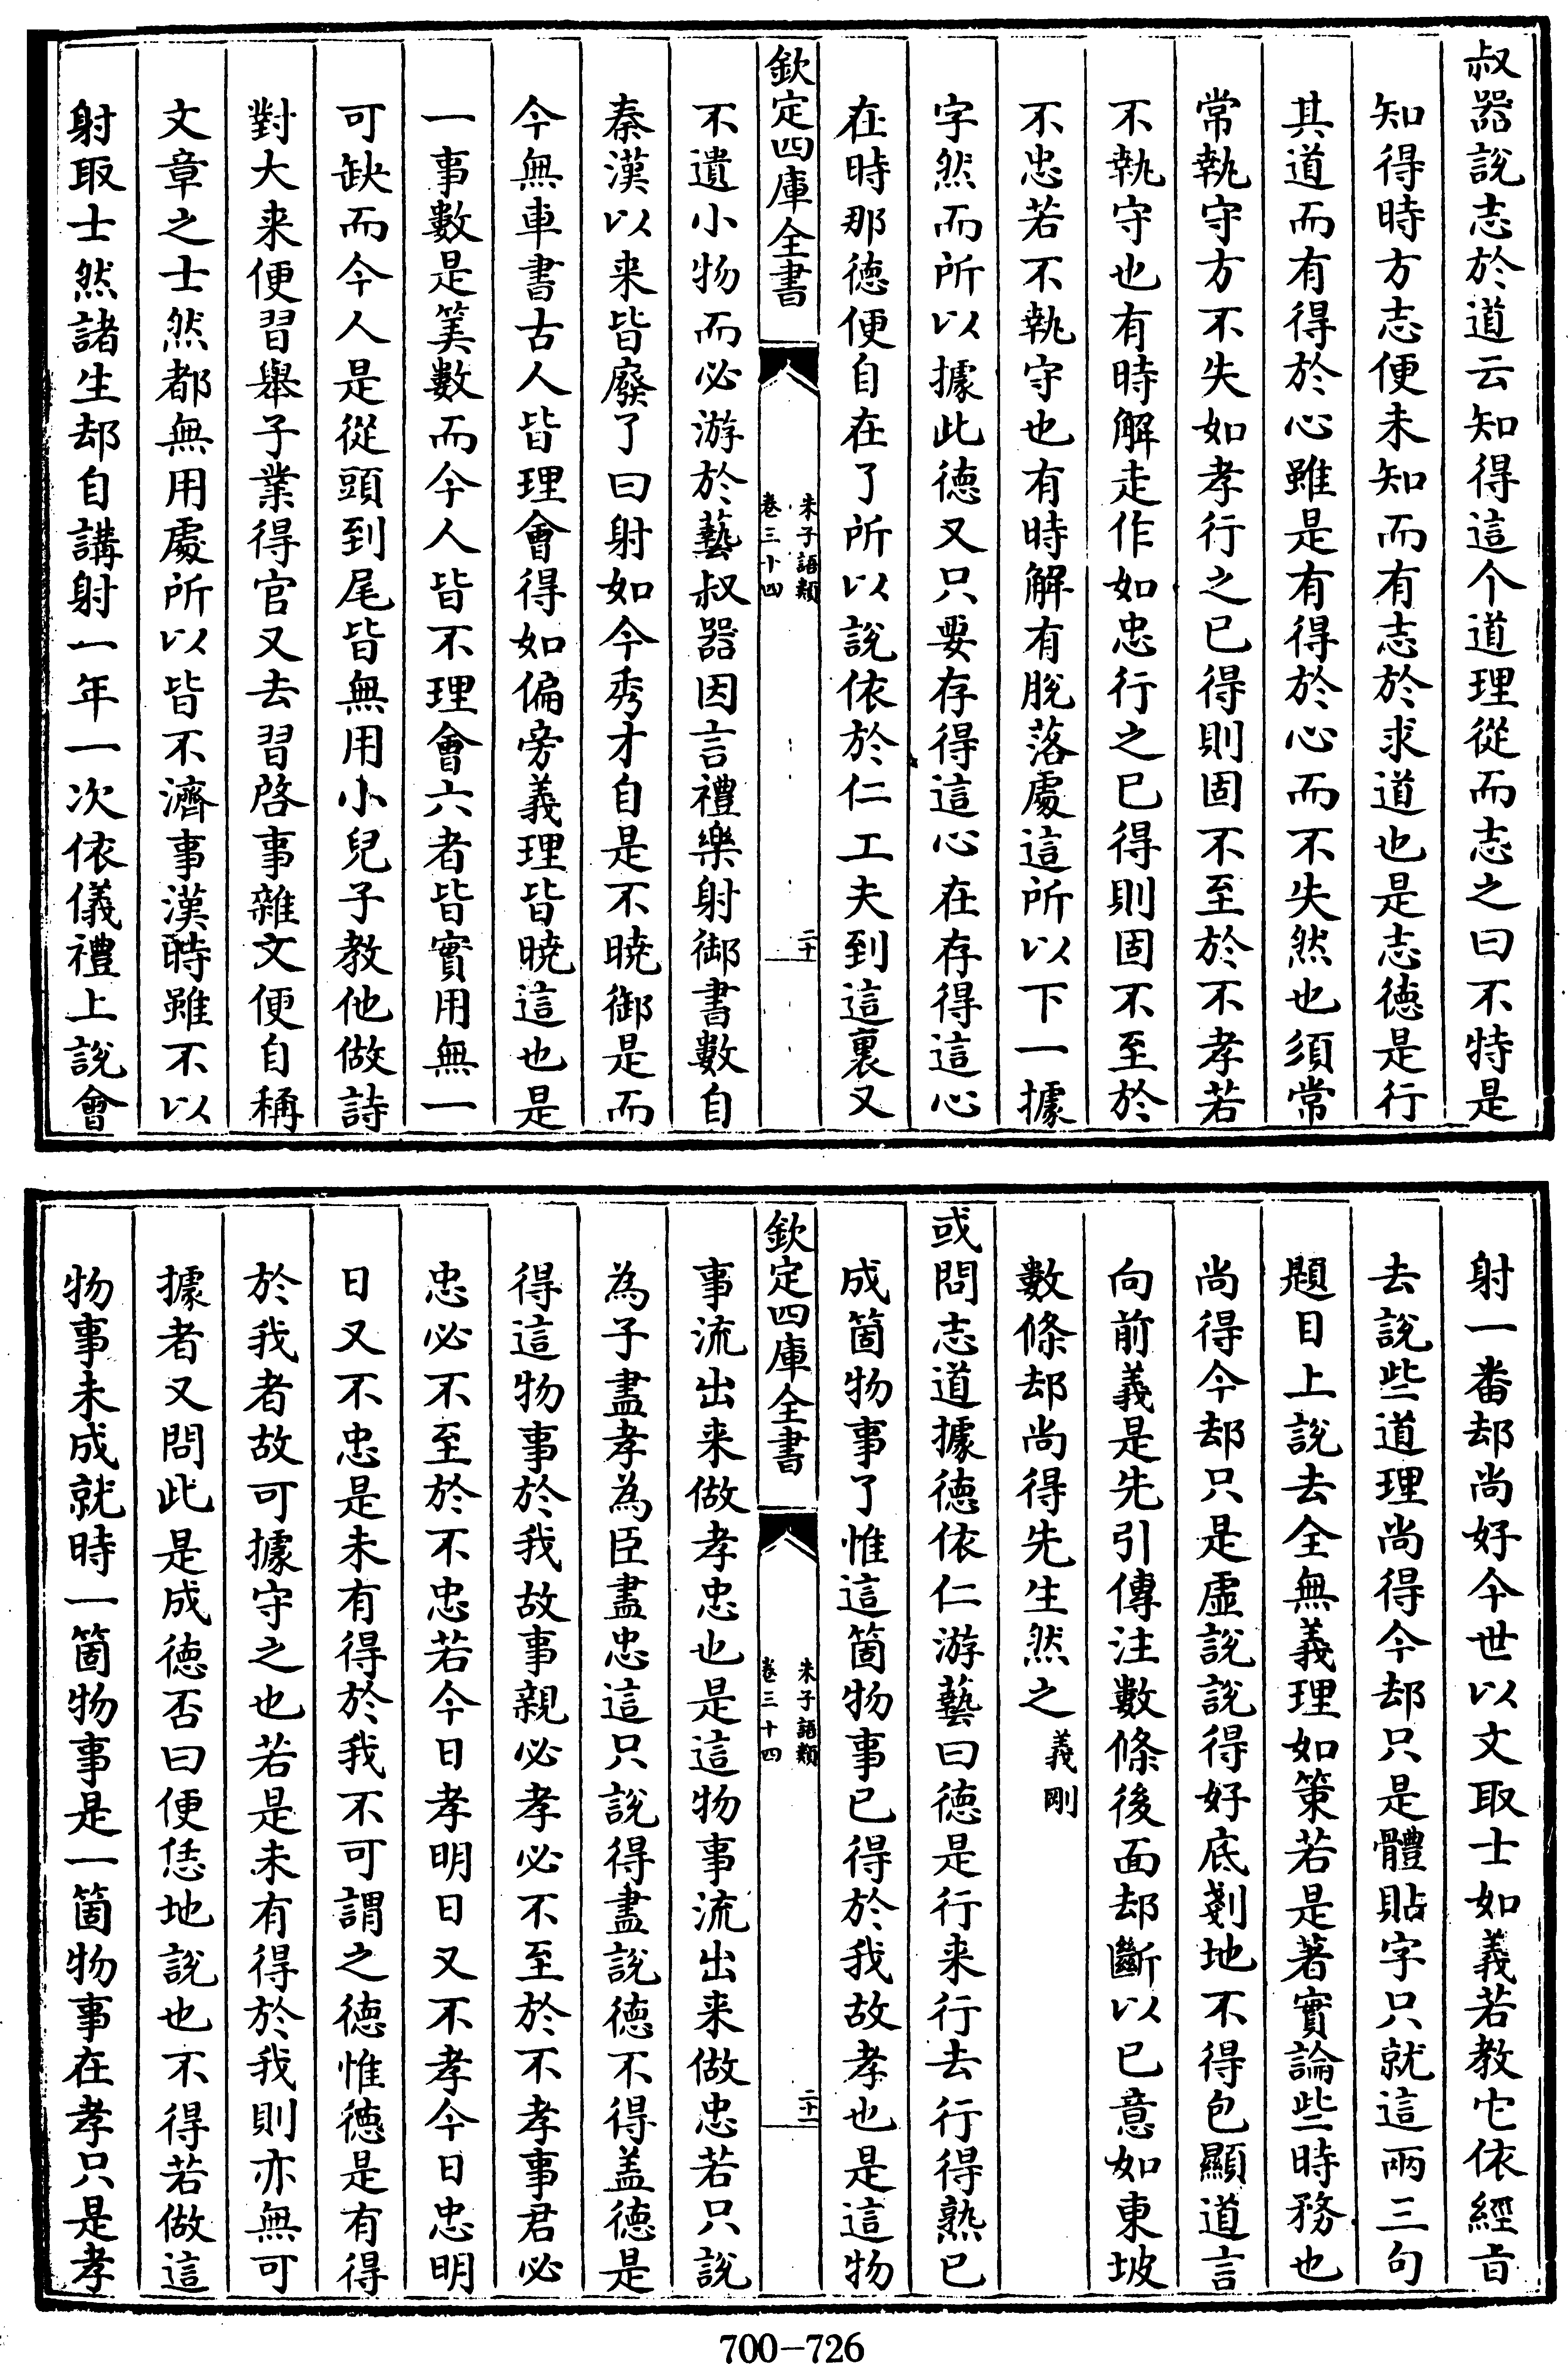 叔器説志於道云知得這个道理從而志之曰不特是
知得時方志便未知而有志於求道也是志徳是行
其道而有得於心雖是有得於心而不失然也須常
常執守方不失如孝行之已得則固不至於不孝若
不執守也有時解走作如忠行之已得則固不至於
不忠若不執守也有時解有脫落處這所以下一據
字然而所以據此徳又只要存得這心在存得這心
在時那徳便自在了所以說依於仁工夫到這裏又
欽定四庫全書
朱子語類
卷三十四
二十
不遺小物而必游於藝叔器因言禮樂射御書數自
秦漢以来皆廢了曰射如今秀才自是不曉御是而
今無車書古人皆理會得如偏旁義理皆曉這也是
一事數是筭數而今人皆不理會六者皆實用無一
可缺而今人是從頭到尾皆無用小兒子教他做詩
對大来便習舉子業得官又去習啓事雜文便自稱
文章之士然都無用處所以皆不濟事漢時雖不以
射取士然諸生却自講射一年一次依儀禮上說會
射一番却尚好今世以文取士如義若教它依經㫖
去說些道理尚得今却只是體貼字只就這兩三句
題目上說去全無義理如策若是著實論些時務也
尚得今却只是虛說說得好底剗地不得包顯道言
向前義是先引傳注數條後面却斷以已意如東坡
數條却尚得先生然之義剛
或問志道據徳依仁游藝曰徳是行来行去行得熟已
成箇物事了惟這箇物事已得於我故孝也是這物
欽定四庫全書
朱子語類
卷三十四
二十一
事流出来做孝忠也是這物事流出来做忠若只說
為子盡孝為臣盡忠這只說得盡說徳不得盖徳是
得這物事於我故事親必孝必不至於不孝事君必
忠必不至於不忠若今日孝明日又不孝今日忠明
日又不忠是未有得於我不可謂之徳惟徳是有得
於我者故可據守之也若是未有得於我則亦無可
據者又問此是成徳否曰便恁地說也不得若做這
物事未成就時一箇物事是一箇物事在孝只是孝
700-726